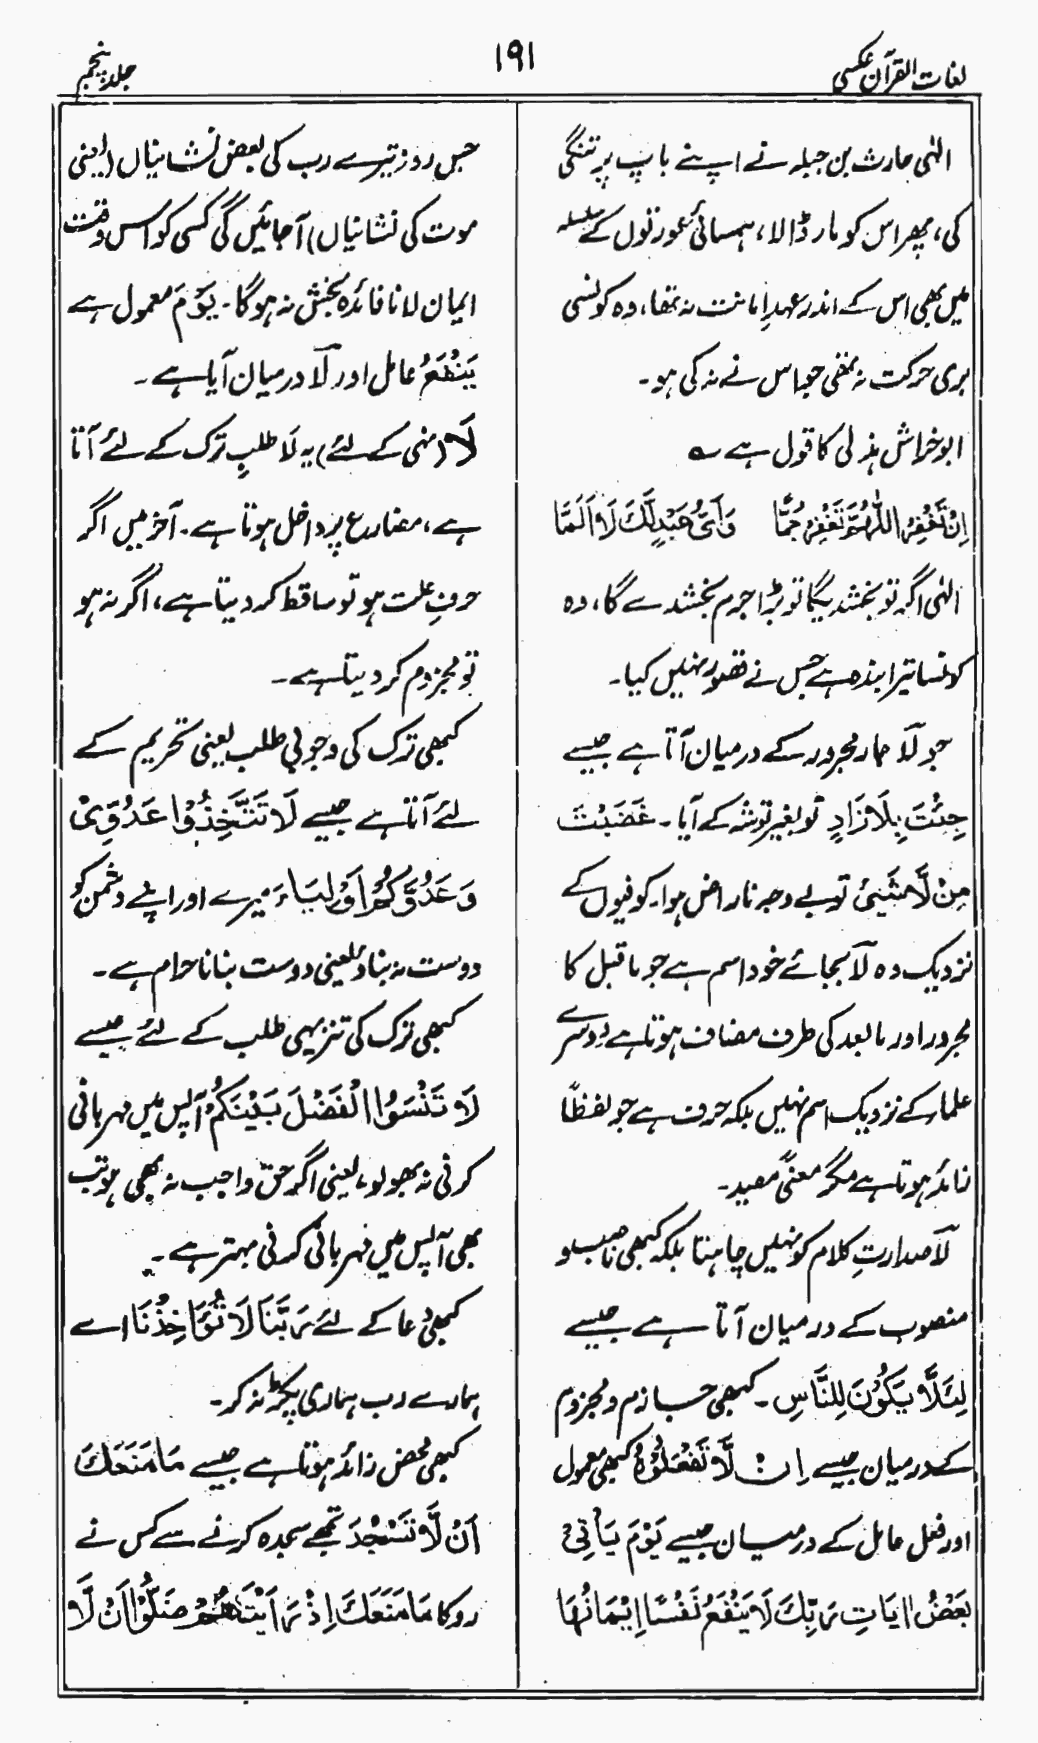 لغات القرآن عکسی
۱۹۱
جلد پنجم
الٰہی حارث بن جبلہ نے اپنے باپ پر تنگی
کی، پھر اس کو مار ڈالا، ہمسائی عورتوں کے سلسلہ
میں بھی اس کے اندر عہدِ امانت نہ تھا، وہ کونسی
بری حرکت نہ تھی جو اس نے نہ کی ہو۔
ابو خراش ہذلی کا قول ہے ؎
اِنْ تَغْفِرِ اللّٰهُمَّ تَغْفِرْ جَمَّا وَاَیُّ عَبْدٍ لَّكَ لَا اَلَمَّا
الٰہی اگر تو بخشدیگا تو بڑا جرم بخشدے گا، وہ
کونسا تیرا بندہ ہے جس نے قصور نہیں کیا۔
جو لَا جار مجرور کے درمیان آتا ہے جیسے
جِئْتَ بِلَا زَادٍ تو بغیر توشہ کے آیا۔ غَضَبْتَ
مِنْ لَّا شَیْئَ تو بے وجہ ناراض ہوا۔ کوفیوں کے
نزدیک وہ لَا بجائے خود اسم ہے جو ماقبل کا
مجرور اور مابعد کی طرف مضاف ہوتا ہے دوسرے
علماء کے نزدیک اسم نہیں بلکہ حرف ہے جو لفظًا
زائد ہوتا ہے مگر معنًی مفید۔
لَا صدارتِ کلام کو نہیں چاہتا بلکہ کبھی ناصب و
منصوب کے درمیان آتا ہے جیسے
لِئَلَّا یَكُوْنَ لِلنَّاسِ۔ کبھی جازم و مجزوم
کے درمیان جیسے اِنْ لَّا تَفْعَلُوْهُ کبھی معمول
اور فعل عامل کے درمیان جیسے یَوْمَ یَاْتِیْ
بَعْضُ اٰیَاتِ رَبِّكَ لَا یَنْفَعُ نَفْسًا اِیْمَانُهَا
جس روز تیرے رب کی بعض نشانیاں (یعنی
موت کی نشانیاں) آجائیں گی کسی کو اس وقت
ایمان لانا فائدہ بخش نہ ہوگا۔ یَوْمَ معمول ہے
یَنْفَعُ عامل اور لَا درمیان آیا ہے۔
لَا (نہی کے لئے) یہ لَا طلبِ ترک کے لئے آتا
ہے، مضارع پر داخل ہوتا ہے۔ آخر میں اگر
حرفِ علت ہو تو ساقط کر دیتا ہے، اگر نہ ہو
تو مجزوم کر دیتا ہے۔
کبھی ترک کی وجوبی طلب یعنی تحریم کے
لئے آتا ہے جیسے لَا تَتَّخِذُوْا عَدُوِّیْ
وَعَدُوَّكُمْ اَوْلِیَاءَ میرے اور اپنے دشمن کو
دوست نہ بناؤ یعنی دوست بنانا حرام ہے۔
کبھی ترک کی تنزیہی طلب کے لئے جیسے
لَا تَنْسَوُا الْفَضْلَ بَیْنَكُمْ آپس میں مہربانی
کرنی نہ بھولو، یعنی اگر حق واجب نہ بھی ہو تب
بھی آپس میں مہربانی کرنی بہتر ہے۔
کبھی دعا کے لئے رَبَّنَا لَا تُؤَاخِذْنَا اے
ہمارے رب ہماری پکڑ نہ کر۔
کبھی محض زائد ہوتا ہے جیسے مَا مَنَعَكَ
اَنْ لَّا تَسْجُدَ تجھے سجدہ کرنے سے کس نے
روکا مَا مَنَعَكَ اِذْ رَاَیْتَهُمْ ضَلُّوْا اَنْ لَّا